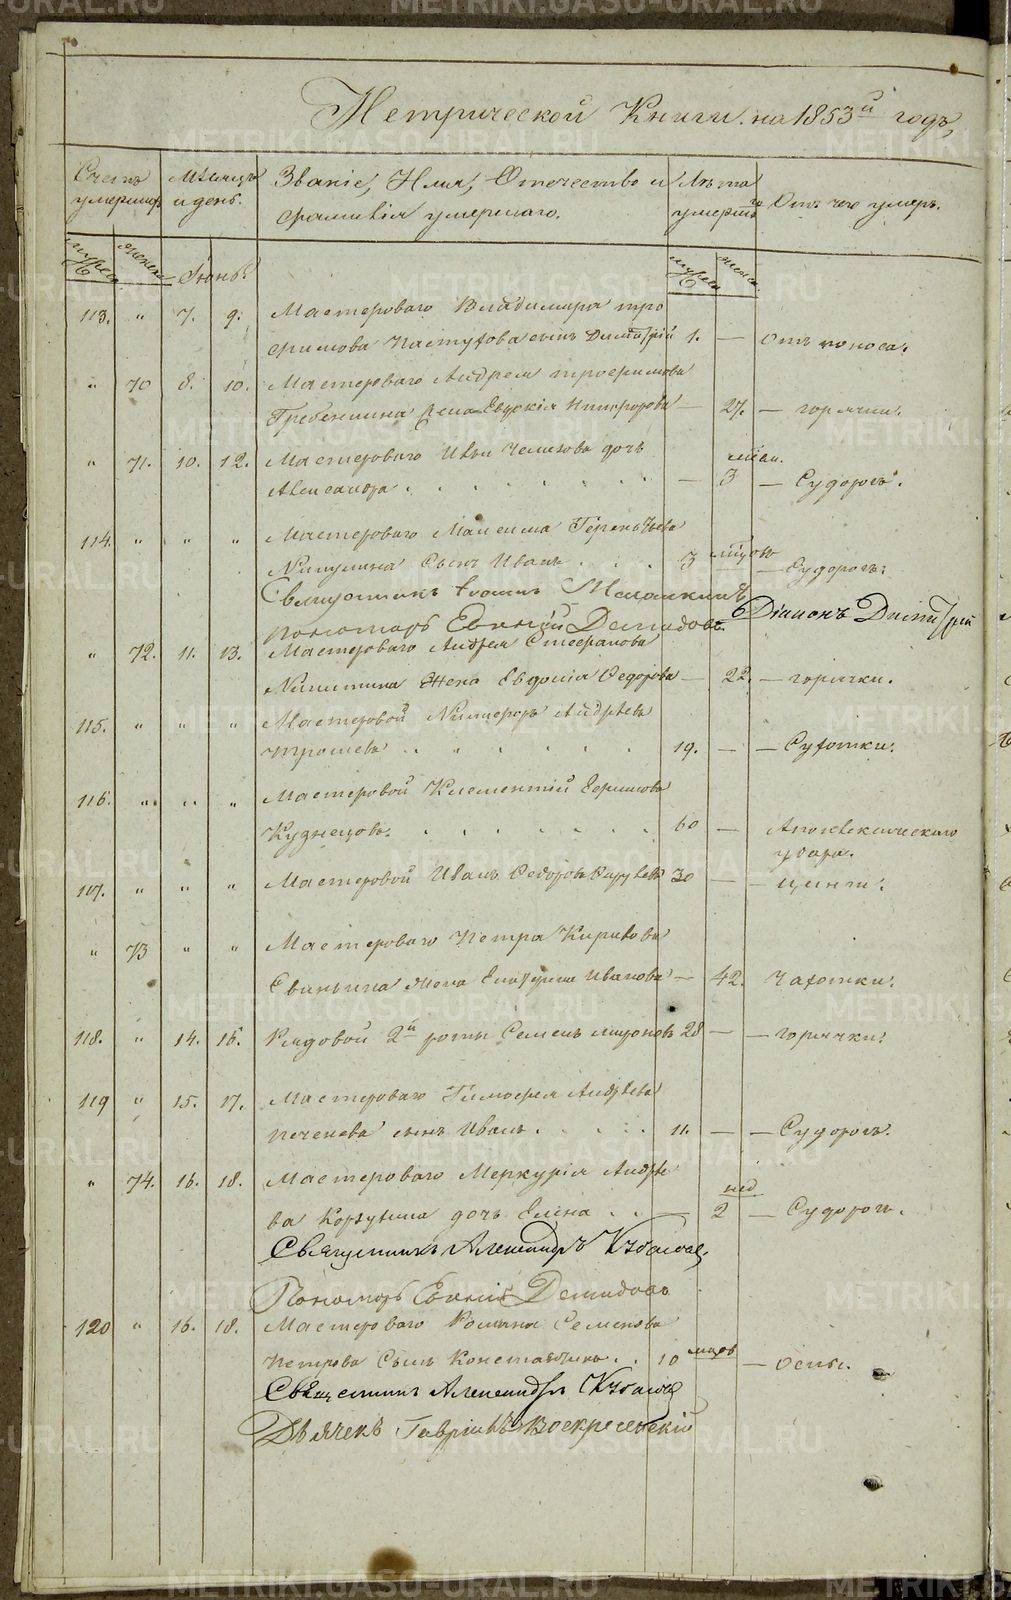 Метрической Книги на 1853й годъ,
Счетъ умершихъ
Мѣсяцъ и день.
Званіе, Имя, Отечество и фамилія умершаго.
Лѣта умершаго
Отъ чего умеръ.
мужеска женска Іюнь мужеска женска
113. " 7. 9. Мастероваго Владимира Тро
фимова Пастухова сынъ Димитрій 1. — Отъ поноса.
" 70 8. 10. Мастероваго Андрея Трофимова
Гребеншина жена Евдокія Никифорова — 27. — горячки.
" 71. 10. 12. Мастероваго дочь мѣся.
Александра — 3 — Судорогъ.
114. " " " Мастероваго Максима Терентьева
Никулина Сынъ Иванъ 3 мѣсяцовъ — Судорогъ.
Священникъ Діаконъ Димитрій
пономарь Евгеній Демидовъ
" 72. 11. 13. Мастероваго Андрея Стефанова
Никитина Жена Евдокія Федорова — 22. — горячки.
115. " " " Мастеровой Никифоръ Андреевъ
Трошевъ 19. — — Сухотки.
116. " " " Мастеровой Климентій Ефимовъ
Кузнецовъ. 60 — Апоплексическаго
удара.
117. " " " Мастеровой Иванъ Федоровъ 30 — — цинги.
" 73 " " Мастероваго Петра Кирилова
жена Екатерина Иванова — 42. Чахотки.
118. " 14. 16. Рядовой 2й роты Семенъ 28 — — горячки.
119 " 15. 17. Мастероваго Тимофея Андреева
Печенева сынъ Иванъ. 11. — — Судорогъ.
" 74. 16. 18. Мастероваго Меркурія Андрее нед
ва Корзунина дочь Елена — 2 — Судорогъ.
Священникъ Александръ
Пономарь Евгеній Демидовъ
120 " 16. 18. Мастероваго Романа Семенова
Петрова Сынъ Константинъ 10 мѣсяц — Оспы.
Священникъ Александръ
Дьячекъ Гавріилъ Воскресенскій
METRIKI.GASU-URAL.RU